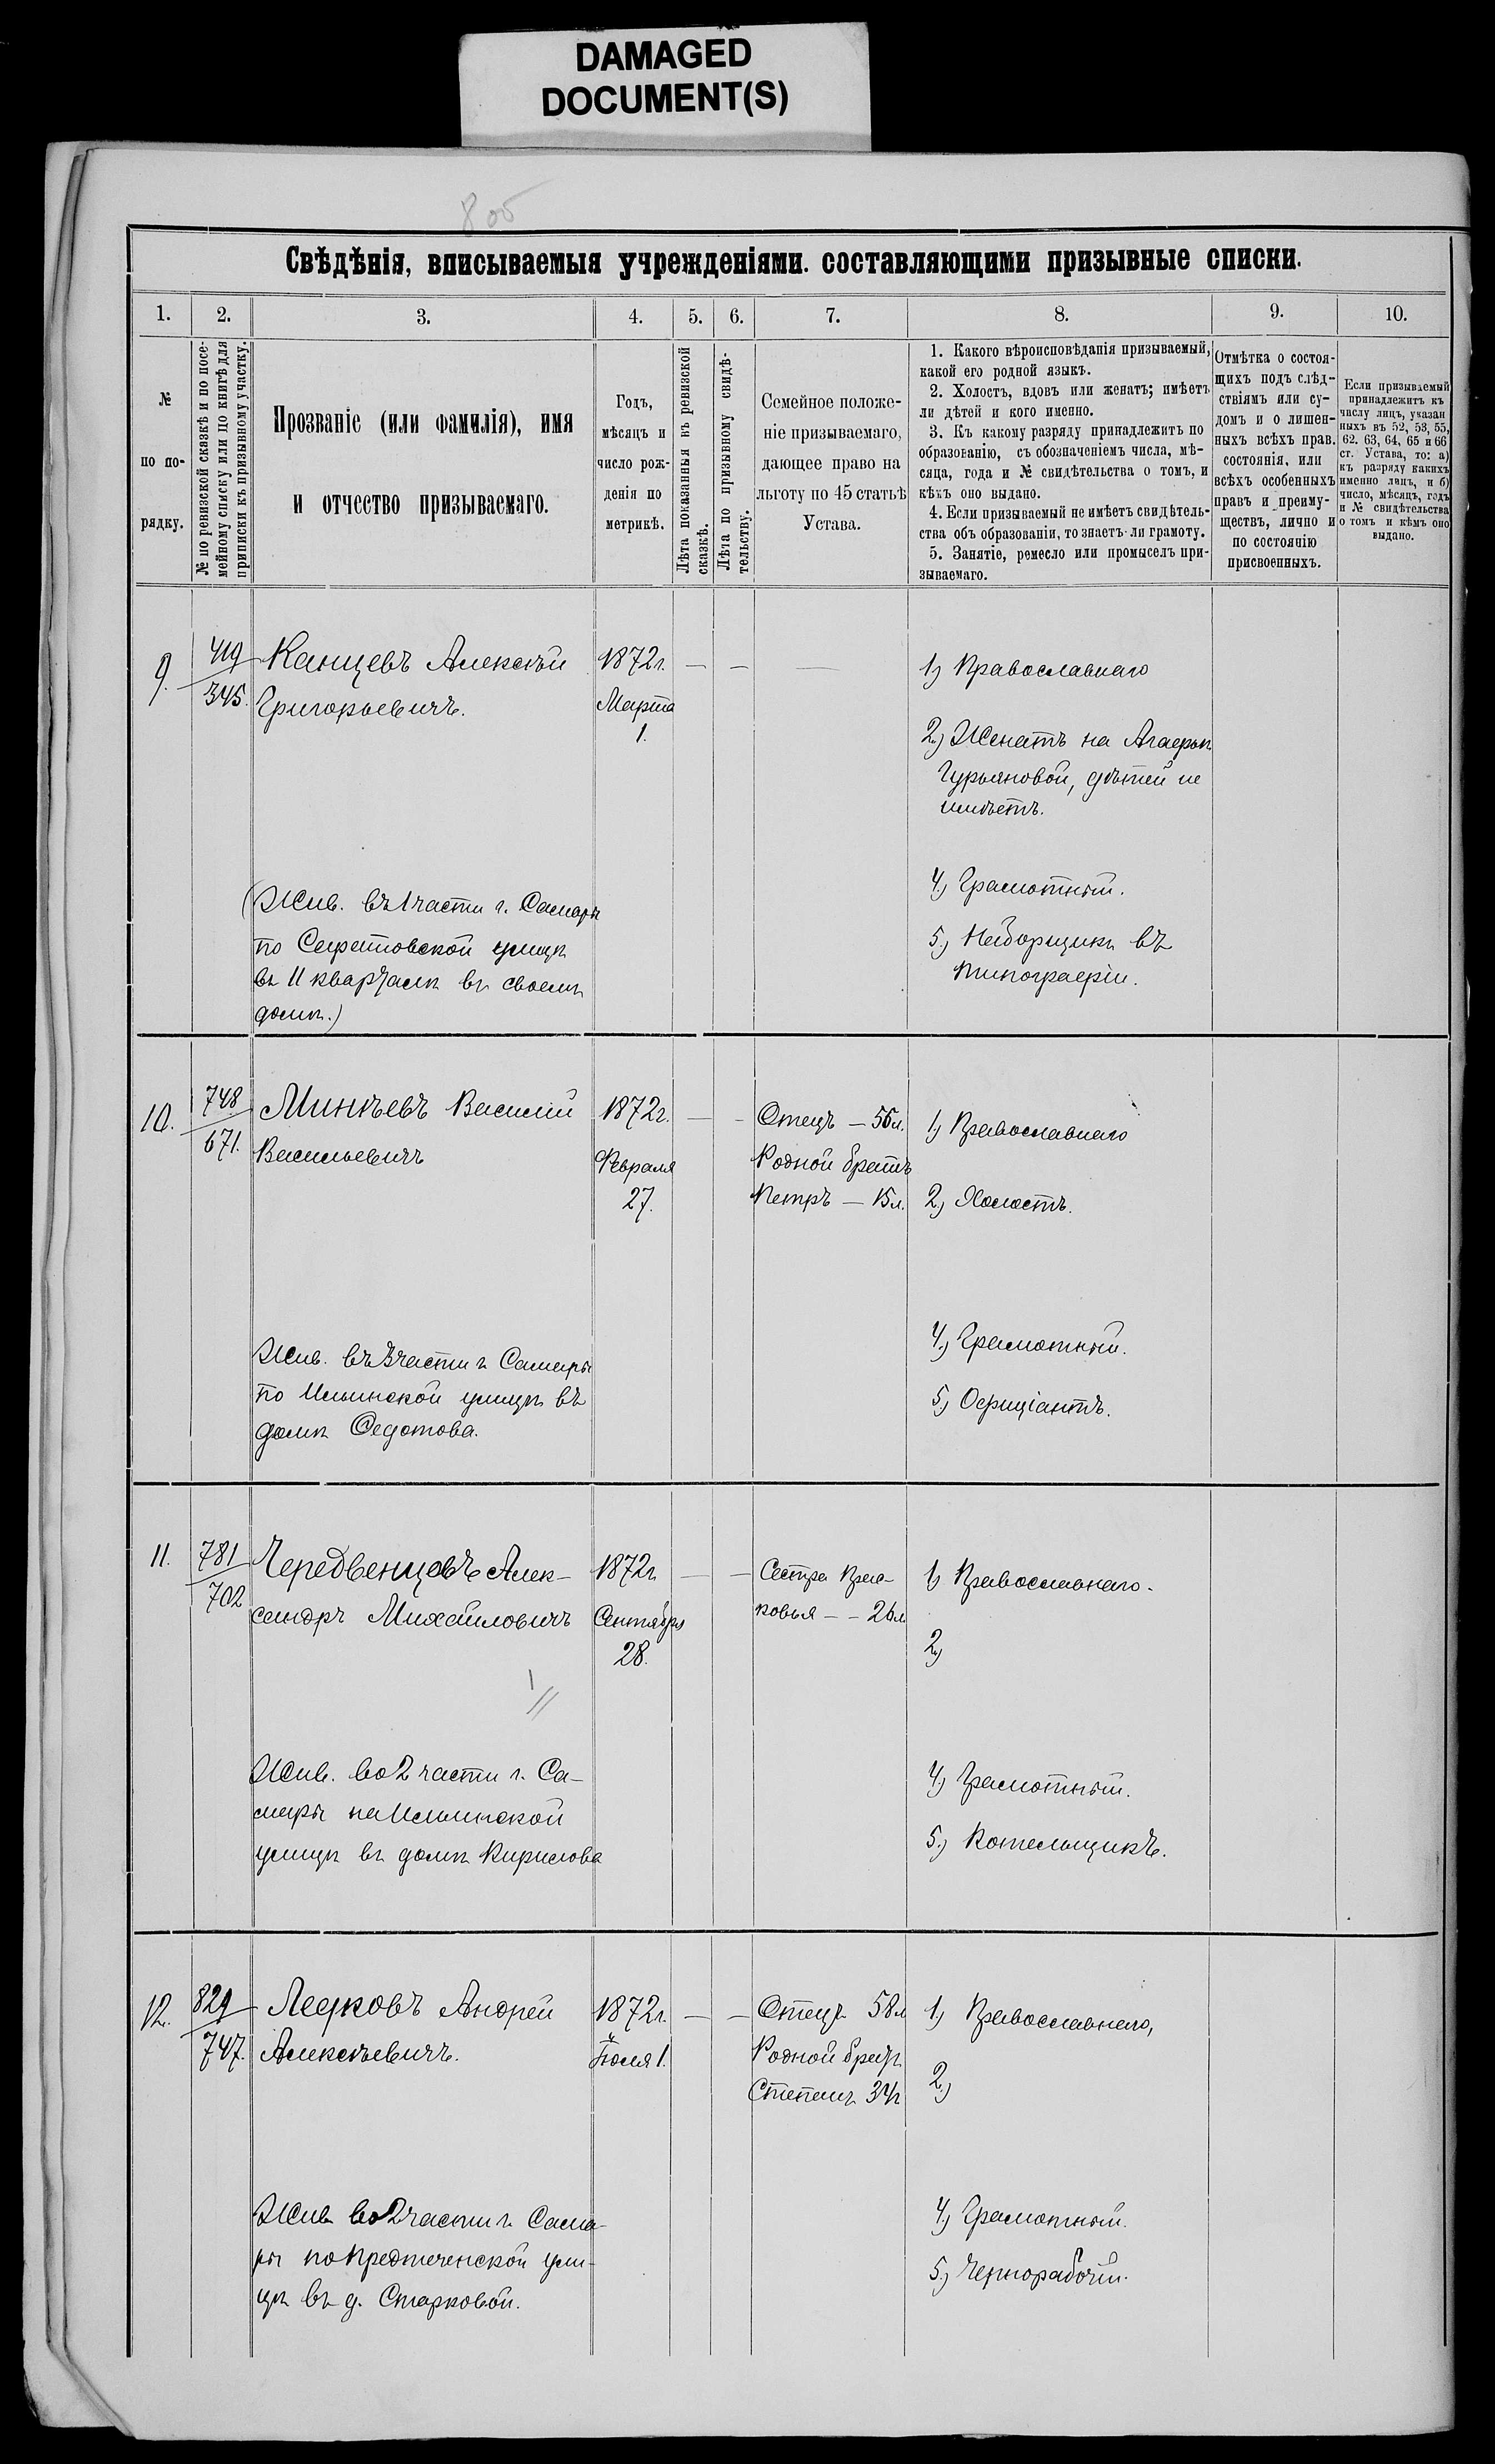 DAMAGED
DOCUMENT(S)
8 об
Свѣдѣнія, вписываемыя учрежденіями. составляющими призывные списки.
1. 2. 3. 4. 5. 6. 7. 8. 9. 10.
№
по по-
рядку.
№ по ревизской сказкѣ и по посе-
мейному списку или по книгѣ для
приписки къ призывному участку.
Прозваніе (или фамилія), имя
и отчество призываемаго.
Годъ,
мѣсяцъ и
число рож-
денія по
метрикѣ.
Лѣта показанныя въ ревизской
сказкѣ.
Лѣта по призывному свидѣ-
тельству.
Семейное положе-
ніе призываемаго,
дающее право на
льготу по 45 статьѣ
Устава.
1. Какого вѣроисповѣданія призываемый,
какой его родной языкъ.
2. Холостъ, вдовъ или женатъ; имѣетъ
ли дѣтей и кого именно.
3. Къ какому разряду принадлежитъ по
образованію, съ обозначеніемъ числа, мѣ-
сяца, года и № свидѣтельства о томъ, и
кѣмъ оно выдано.
4. Если призываемый не имѣетъ свидѣтель-
ства объ образованіи, то знаетъ-ли грамоту.
5. Занятіе, ремесло или промыселъ при-
зываемаго.
Отмѣтка о состоя-
щихъ подъ слѣд-
ствіямъ или су-
домъ и о лишен-
ныхъ всѣхъ прав.
состоянія, или
всѣхъ особенныхъ
правъ и преиму-
ществъ, лично и
по состоянію
присвоенныхъ.
Если призываемый
принадлежитъ къ
числу лицъ, указан
ныхъ въ 52, 53, 55,
62. 63, 64, 65 и 66
ст. Устава, то: а)
къ разряду какихъ
именно лицъ, и б)
число, мѣсяцъ, годъ
и № свидѣтельства
о томъ и кѣмъ оно
выдано.
9. 419 Канцевъ Алексѣй 1872г. — — —
345. Григорьевичъ. Марта
1.
1) Православнаго
2.) Женатъ на Агафьѣ
Гурьяновой, дѣтей не
имѣетъ.
4.) Грамотный.
5.) Наборщикъ въ
типографіи.
(Жив. въ 1 части г. Самары
по улицѣ
въ 11 кварталѣ въ своемъ
домѣ.)
10. 748 Минѣевъ Василій 1872г. — — Отецъ — 56 л.
671. Васильевичъ Февраля Родной братъ
27. Петръ — 15 л.
1) Православнаго
2.) Холостъ.
4.) Грамотный.
5.) Офиціантъ.
Жив. въ 3 части г. Самары
по Ильинской улицѣ въ
домѣ Федотова.
11. 781 Чередвенцевъ Алек- 1872г. — — Сестра Прас-
702 сандръ Михайловичъ Сентября ковья — — 26 л
28.
1) Православнаго.
2)
4.) Грамотный.
5.) Котельщикъ.
Жив. во 2 части г. Са-
мары на Ильинской
улицѣ въ домѣ Кирилова
12. 829 Ледковъ Андрей 1872г. — — Отецъ 58 л
747. Алексѣевичъ. Іюля 1. Родной братъ
Степанъ 34 г
1) Православнаго,
2.)
4.) Грамотный.
5.) Чернорабочій.
Жив во 2 части г. Сама-
ры по Предтеченской ули-
цѣ въ д. Старковой.